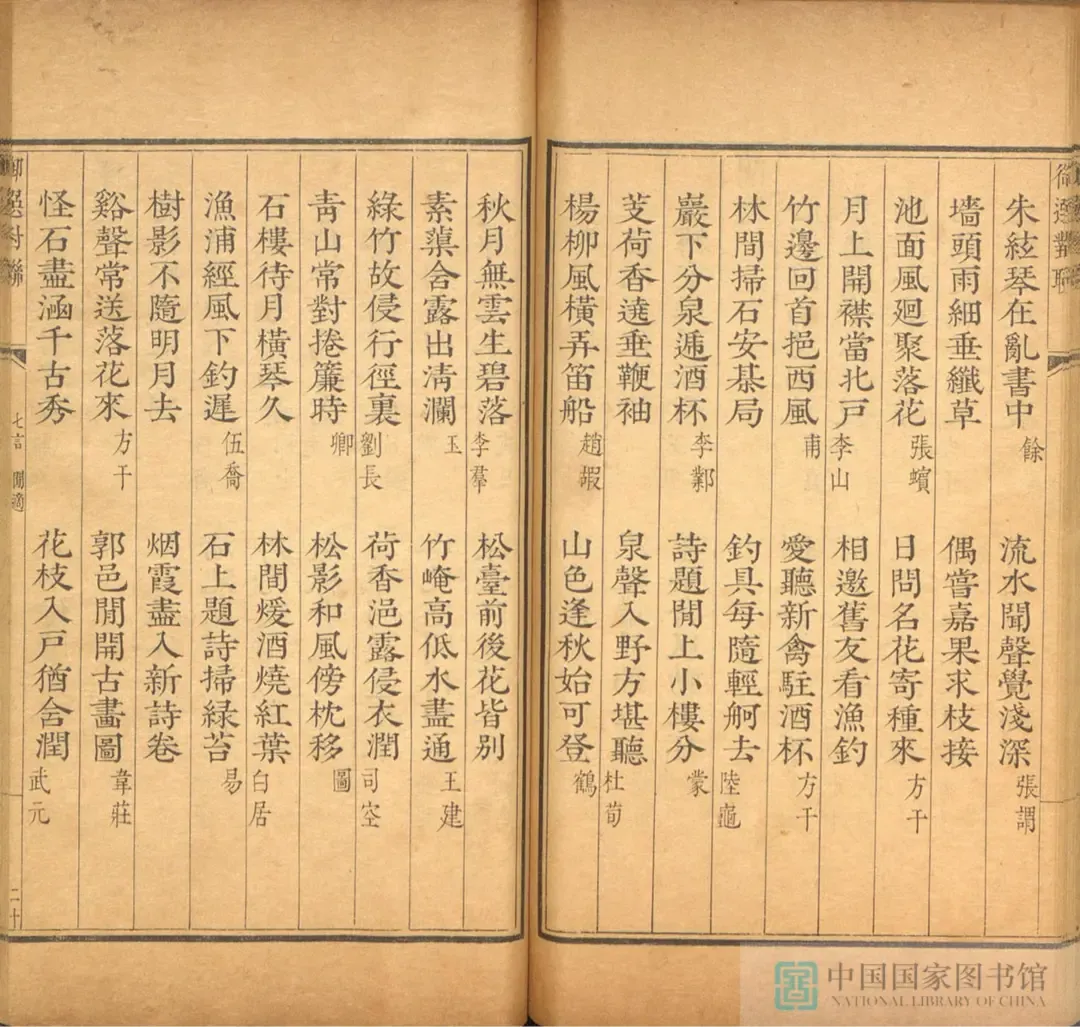 御選對聯
朱絃琴在亂書中 餘 流水聞聲覺淺深 張謂
墻頭雨細垂纖草 偶嘗嘉果求枝接
池面風廻聚落花 張蠙 日問名花寄種來 方干
月上開襟當北戶 李山 相邀舊友看漁釣
竹邊回首挹西風 甫 愛聽新禽駐酒杯 方干
林間掃石安棊局 釣具每隨輕舸去 陸龜
巖下分泉遞酒杯 李鄴 詩題閒上小樓分 蒙
芰荷香遶垂鞭袖 泉聲入野方堪聽 杜荀
楊柳風橫弄笛船 趙嘏 山色逢秋始可登 鶴
秋月無雲生碧落 李羣 松臺前後花皆別
素蕖含露出淸瀾 玉 竹崦高低水盡通 王建
綠竹故侵行徑裏 劉長 荷香浥露侵衣潤 司空
靑山常對捲簾時 卿 松影和風傍枕移 圖
石樓待月橫琴久 林間煖酒燒紅葉 白居
漁浦經風下釣遲 伍喬 石上題詩掃緑苔 易
樹影不隨明月去 烟霞盡入新詩卷
谿聲常送落花來 方干 郭邑閒開古畫圖 韋莊
怪石盡涵千古秀 花枝入戶猶含潤 武元
御選對聯 七言 閒適 二十
中国国家图书馆
NATIONAL LIBRARY OF CHINA